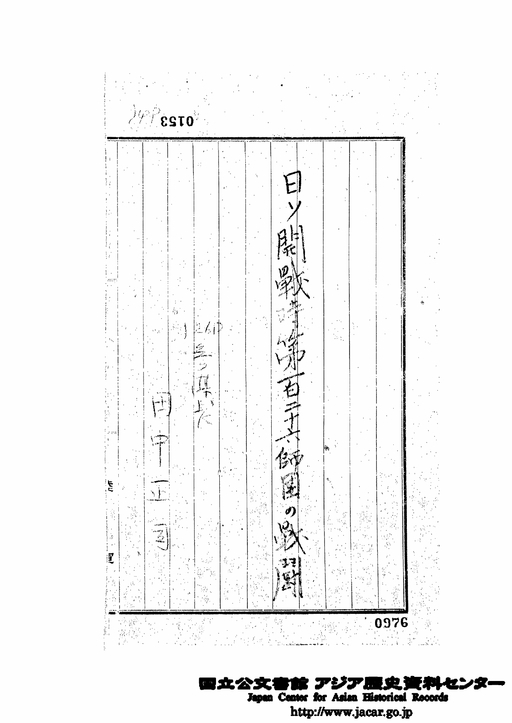 0153
日ソ開戦時第一百二十六師団の戦闘
田中正司
0976
国立公文書館 アジア歴史資料センター
Japan Center for Asian Historical Records
http://www.jacar.go.jp